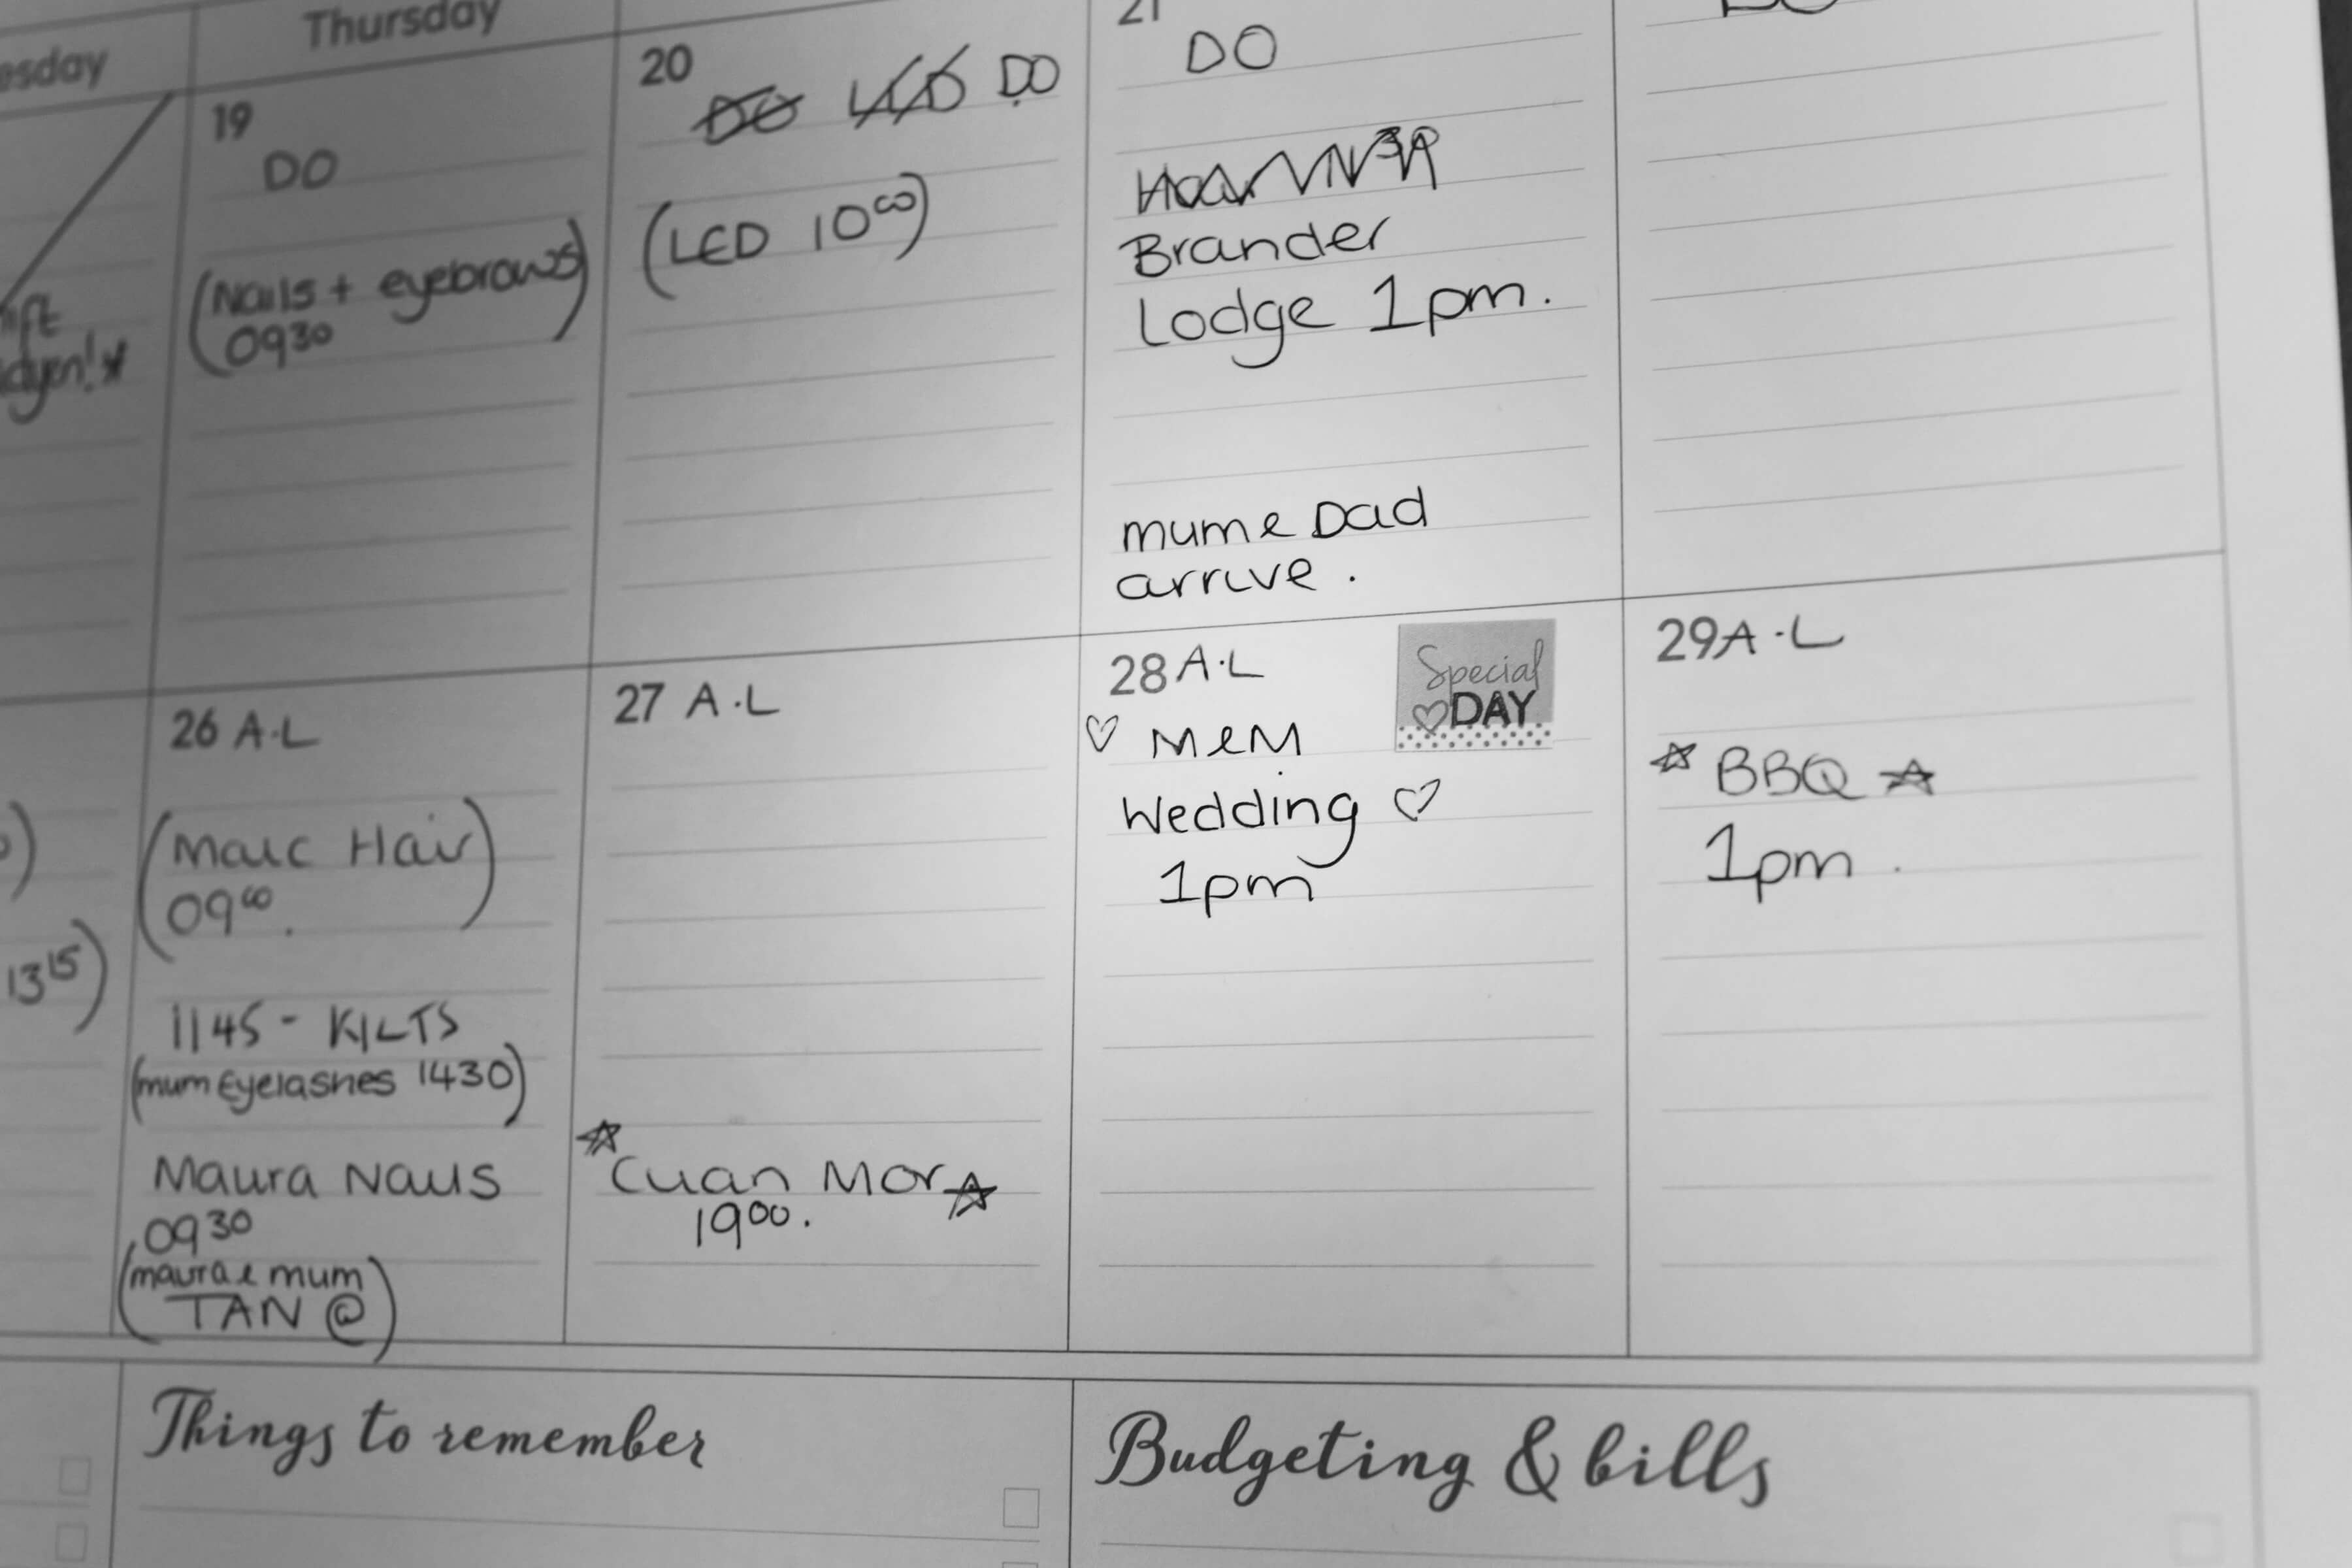 Thursday
19
DO
(Nails + eyebrows)
0930
20
DO DO
(LED 1000)
21
DO
Brander
Lodge 1pm.
mum & Dad
arrive.
26 A.L
(Marc Hair)
0900.
1315)
1145 - KILTS
(mum Eyelashes 1430)
Maura Nails
0930
(maura & mum
TAN @)
27 A.L
☆
Cuan Mor ☆
1900.
28 A.L
Special
♡ DAY
♡ M&M
Wedding ♡
1pm
29 A.L
☆ BBQ ☆
1pm.
Things to remember
Budgeting & bills